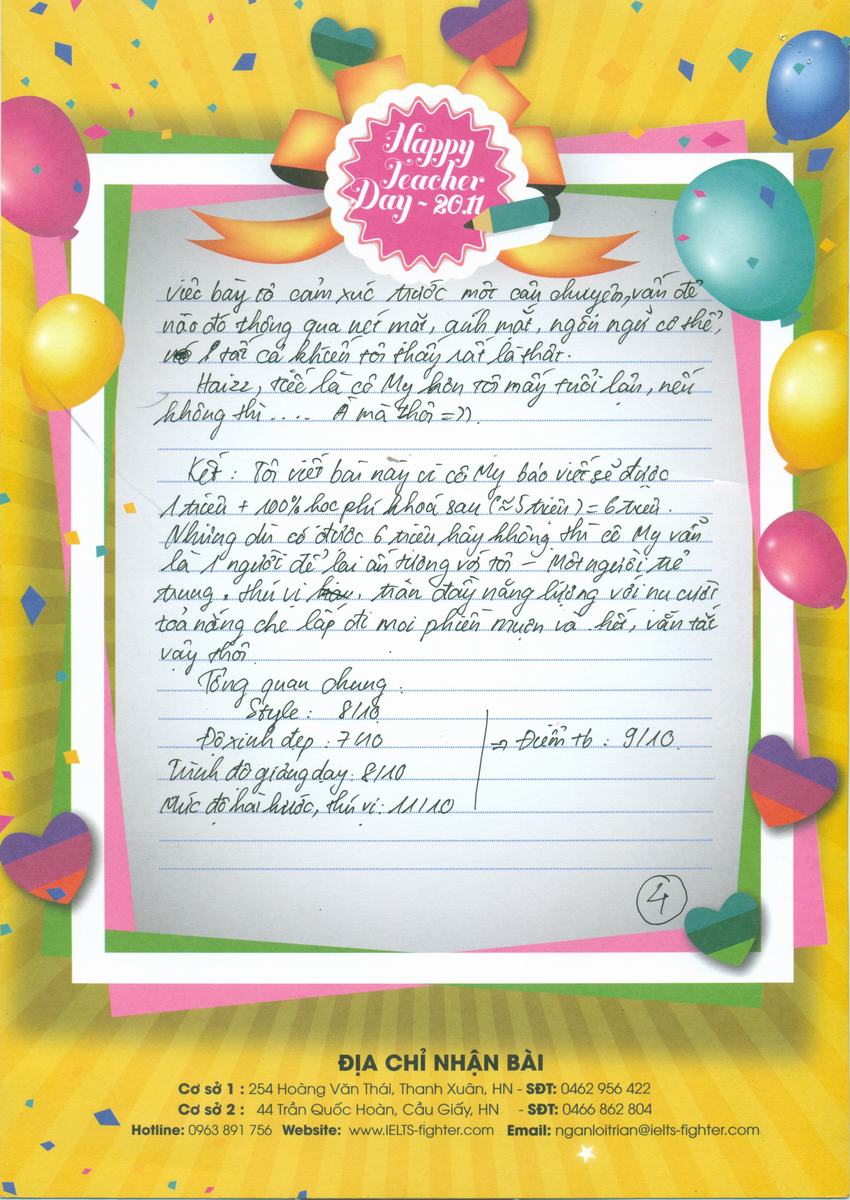 Happy
Teacher
Day ~ 20.11
việc bày tỏ cảm xúc trước một câu chuyện, vấn đề
nào đó thông qua nét mặt, ánh mắt, ngôn ngữ cơ thể,
tất cả khiến tôi thấy rất là thật.
Haizz, tiếc là cô My hơn tôi mấy tuổi lận, nếu
không thì .... À mà thôi =)).
Kết : Tôi viết bài này vì cô My bảo viết sẽ được
1 triệu + 100% học phí khoá sau (≈ 5 triệu) = 6 triệu.
Nhưng dù có được 6 triệu hay không thì cô My vẫn
là 1 người để lại ấn tượng với tôi – Một người trẻ
trung, thú vị, tràn đầy năng lượng với nụ cười
toả nắng che lấp đi mọi phiền muộn và hết, vắn tắt
vậy thôi.
Tổng quan chung :
Style : 8/10
Độ xinh đẹp : 7/10
⇒ Điểm tb : 9/10.
Trình độ giảng dạy : 8/10
Mức độ hài hước, thú vị : 11/10
4
ĐỊA CHỈ NHẬN BÀI
Cơ sở 1 : 254 Hoàng Văn Thái, Thanh Xuân, HN - SĐT: 0462 956 422
Cơ sở 2 : 44 Trần Quốc Hoàn, Cầu Giấy, HN - SĐT: 0466 862 804
Hotline: 0963 891 756 Website: www.IELTS-fighter.com Email: nganloitrian@ielts-fighter.com